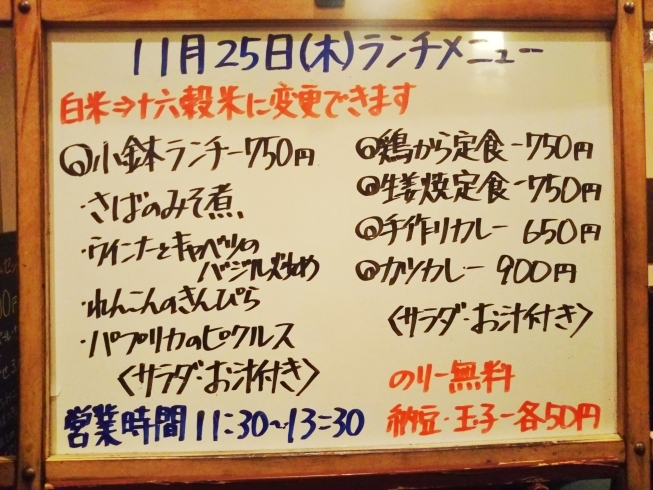 11月25日(木)ランチメニュー
白米⇒十六穀米に変更できます
◎小鉢ランチー750円
・さばのみそ煮、
・ウインナーとキャベツの
バジル炒め
・れんこんのきんぴら
・パプリカのピクルス
〈サラダ・お汁付き〉
営業時間 11:30~13:30
◎鶏から定食ー750円
◎生姜焼定食ー750円
◎手作りカレー 650円
◎カツカレー 900円
〈サラダ・お汁付き〉
のりー無料
納豆・玉子ー各50円